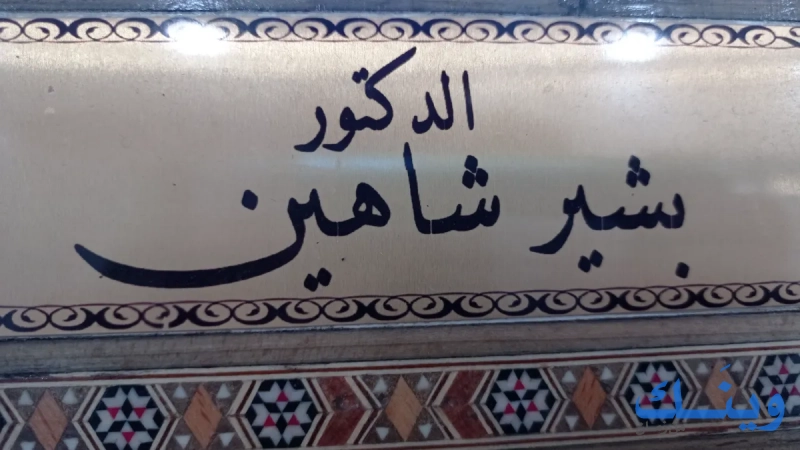 الدكتور
بشير شاهين
وينك